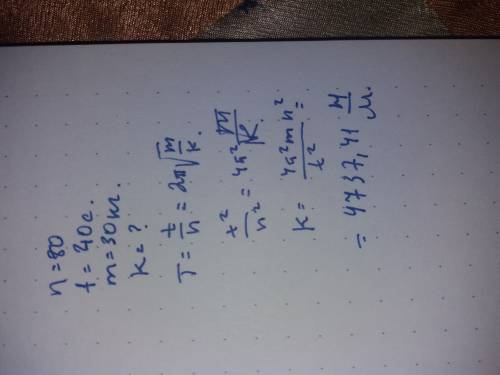 n=80
t=40c.
m=30кг.
k=?
T = t/n = 2π√(m/k).
t²/n² = 4π² m/k
k = 4π²mn²/t² =
= 4737,41 Н/м.